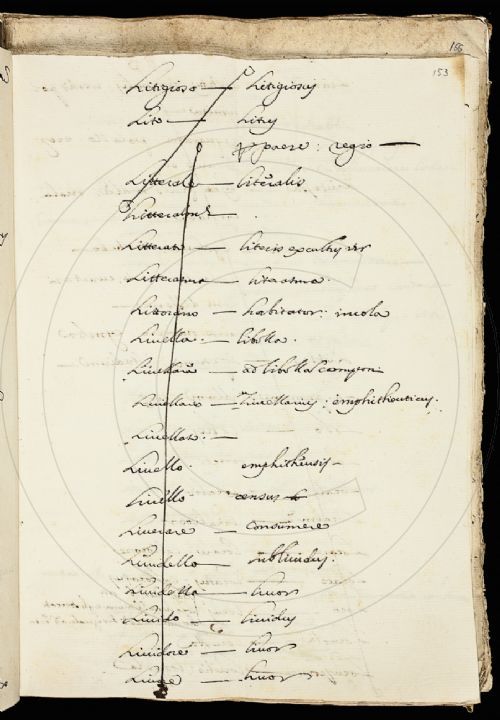 166
153
Litigioso — Litigiosus
Lito — Litus
paese : regio —
Litterale — literalis
Litteralm.te — .
Litterato — literis excultus vir
Litteratura — literatura.
Littorano — habitator : incola
Livella. — libella.
Livellare — ad libellã
Livellario — Livellarius : emphitheuticus.
Livellato: —
Livello. emphitheusis —
Livello. census
Liverare — consumere
Lividello — sublividus.
Lividella — livor
Livido — lividus
Lividore — livor
Livore — livor